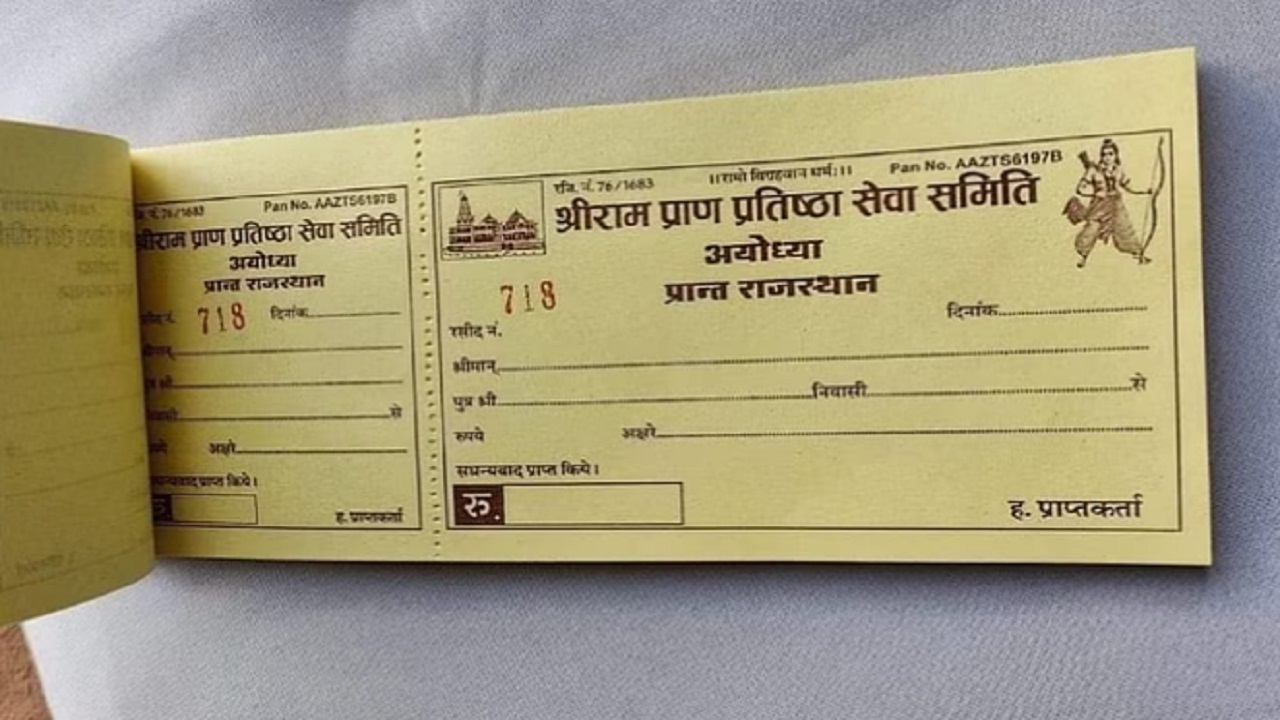 जि. नं. 76/1683 Pan No. AAZTS6197B
श्रीराम प्राण प्रतिष्ठा सेवा समिति
अयोध्या
प्रान्त राजस्थान
नं. 718 दिनांक
श्री
से
अक्षरे
प्राप्त किये।
ह. प्राप्तकर्ता
रजि. नं. 76/1683 ।।रामो विग्रहवान धर्मः।। Pan No. AAZTS6197B
श्रीराम प्राण प्रतिष्ठा सेवा समिति
अयोध्या
प्रान्त राजस्थान
718
दिनांक
रसीद नं.
श्रीमान्
पुत्र श्री निवासी से
रुपये अक्षरे
सधन्यवाद प्राप्त किये।
रु.
ह. प्राप्तकर्ता